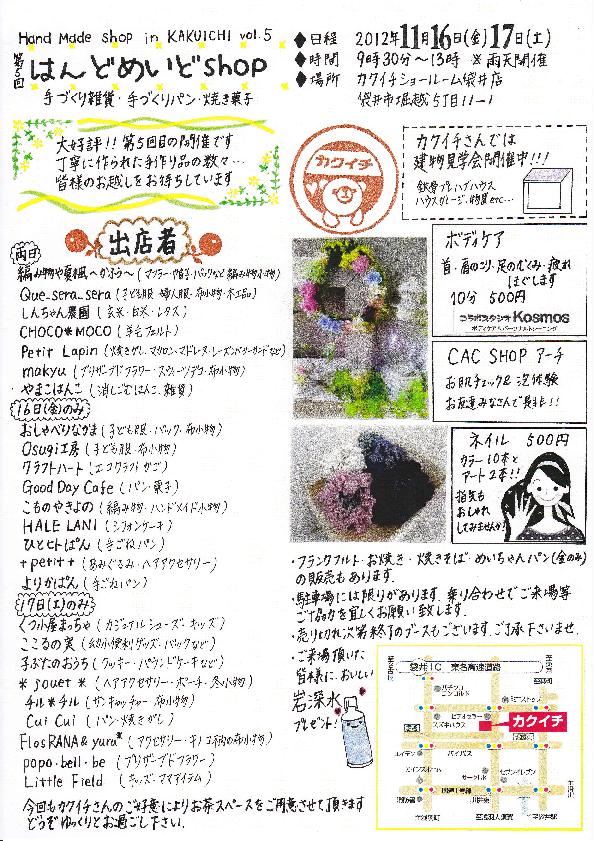 Hand Made shop in KAKUICHI vol.5
第5回
はんどめいどshop
手づくり雑貨・手づくりパン・焼き菓子
◆日程 2012年11月16日(金)17日(土)
◆時間 9時30分〜13時 ※雨天開催
◆場所 カクイチショールーム袋井店
袋井市堀越5丁目11-1
大好評!! 第5回目の開催です
丁寧に作られた手作り品の数々…
皆様のお越しをお待ちしています
カクイチ
カクイチさんでは
建物見学会開催中!!!
鉄骨プレハブハウス
ハウスガレージ、物置etc…
出店者
両日
編み物や夏風〜かふう〜(マフラーや帽子・バッグなど編み物小物)
Que_sera_sera(子ども服・婦人服・布小物・木工品)
しんちゃん農園(玄米・白米・レタス)
CHOCO*MOCO(羊毛フェルト)
Petit Lapin(焼きドーナツ・マカロン・マドレーヌ・レーズンバターサンドなど)
makyu(プリザーブドフラワー・スウィーツデコ・布小物)
やまこはんこ(消しゴムはんこ、雑貨)
16日(金)のみ
おしゃべりなかま(子ども服・バッグ・布小物)
Osugi工房(子ども服・布小物)
クラフトハート(エコクラフトかご)
Good Day Cafe(パン・菓子)
こものやきよの(編み物・ハンドメイド小物)
HALE LANI(シフォンケーキ)
ひとヒトぱん(手ごねパン)
+petit+(あみぐるみ・ヘアアクセサリー)
よりかぱん(手ごねパン)
17日(土)のみ
くつ小屋まっちゃ(カジュアルシューズ・キッズ)
こころの実(幼小便利グッズ・バッグなど)
子ぶたのおうち(クッキー・パウンドケーキなど)
*jouet*(ヘアアクセサリー・ポーチ・冬小物)
チル*チル(サンキャッチャー・布小物)
Cui Cui(パン・焼きがし)
FlosRANA&yuru*(アクセサリー・キノコ・和の布小物)
popo・bell・be(プリザーブドフラワー)
Little Field(キッズ・ママアイテム)
今回もカクイチさんのご好意によりお茶スペースをご用意させて頂きます
どうぞゆっくりとお過ごし下さい。
ボディケア
首・肩のこり・足のむくみ・疲れ
ほぐします
10分 500円
コラボスタジオ Kosmos
ボディケア&パーソナルトレーニング
CAC SHOP アーチ
お肌チェック&泡体験
お友達みなさんで是非!!
ネイル 500円
カラー10本と
アート2本!!
指先も
おしゃれ
してみませんか?
・フランクフルト・お焼き・焼きそば・めいちゃんパン(金のみ)
の販売もあります。
・駐車場には限りがあります。乗り合わせでご来場等
ご協力を宜しくお願い致します。
・売り切れ次第終了のブースもございます。ご了承下さいませ。
・ご来場頂いた
皆様に、おいしい
岩深水
プレゼント!
袋井IC 東名高速道路
パチンコ
コンコルド
ミニストップ
ビデオセラー
スズキハウス
カクイチ
エイデン
バイパス
サークルK
セブンイレブン
消防署
国道1号線
川井東